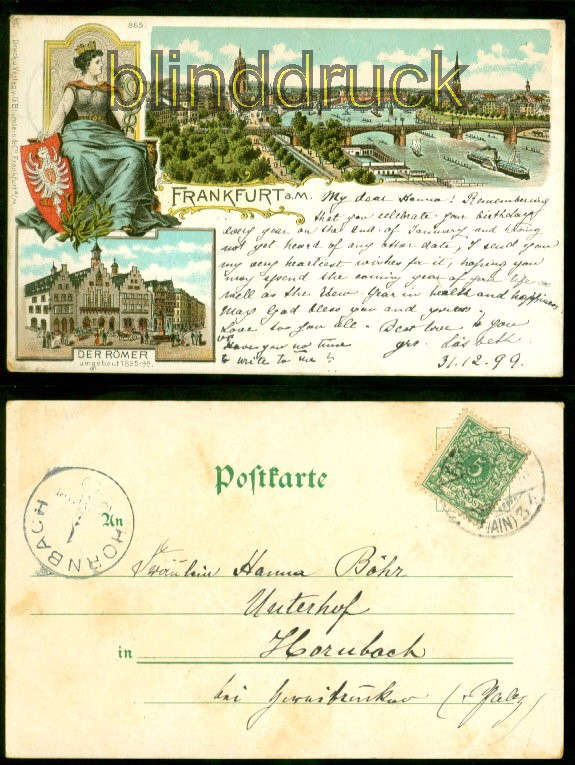 blinddruck
865.
FRANKFURT a. M.
My dear Hanna! Remembering
that you celebrate your birthday
every year on the 2nd of January and having
not yet heard of any other date, I send you
my very heartiest wishes for it, hoping you
may spend the coming year of your life as
well as the New Year in health and happiness
May God bless you and yours.
Love to you all. Best love to you
Have you no time
to write to me?
yrs.
31.12.99.
DER RÖMER
umgebaut 1895-98.
Postkarte
An
HORNBACH
5
(MAIN)
Fräulein Hanna Böhr
Unterhof
in Hornbach
bei Zweibrücken (Pfalz)